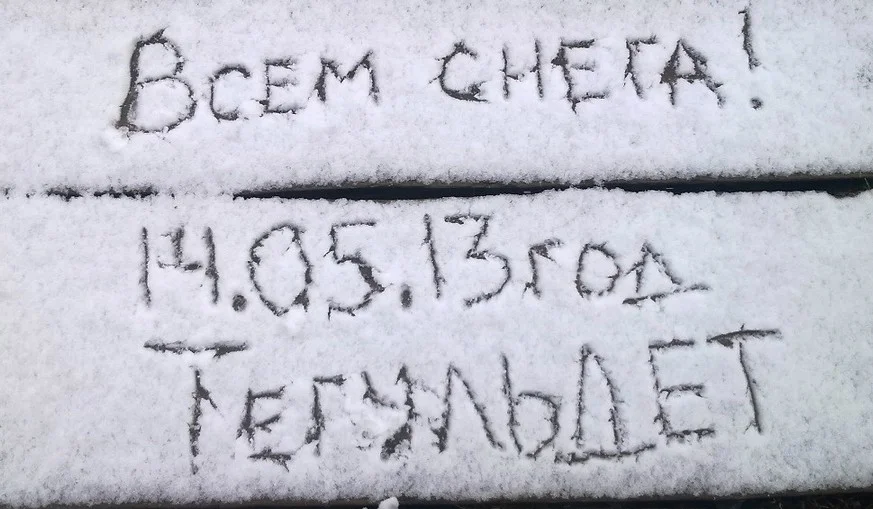 Всем снега!
14.05.13год
ТегульДЕТ